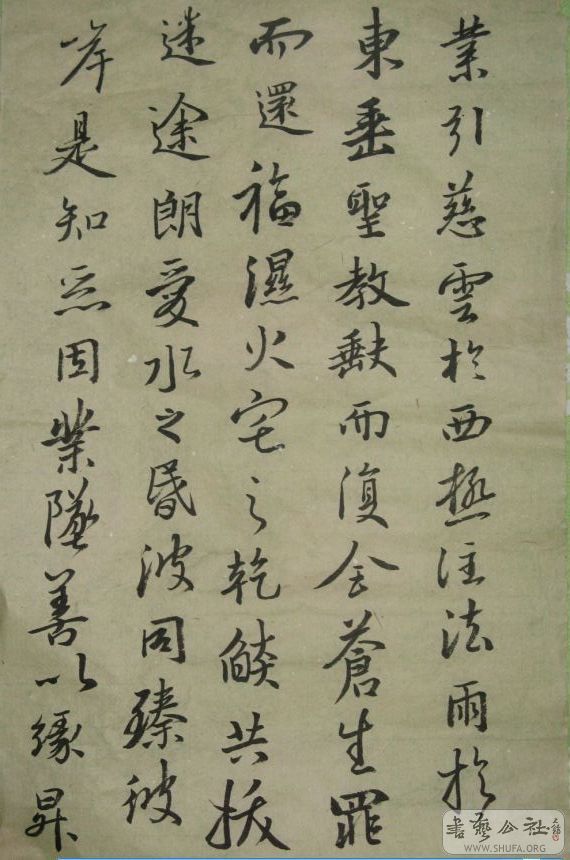 業引慈雲於西極注法雨於
東垂聖教缺而復全蒼生罪
而還福濕火宅之乾燄共拔
迷途朗愛水之昏波同臻彼
岸是知惡因業墜善以緣昇
書藝公社
WWW.SHUFA.ORG